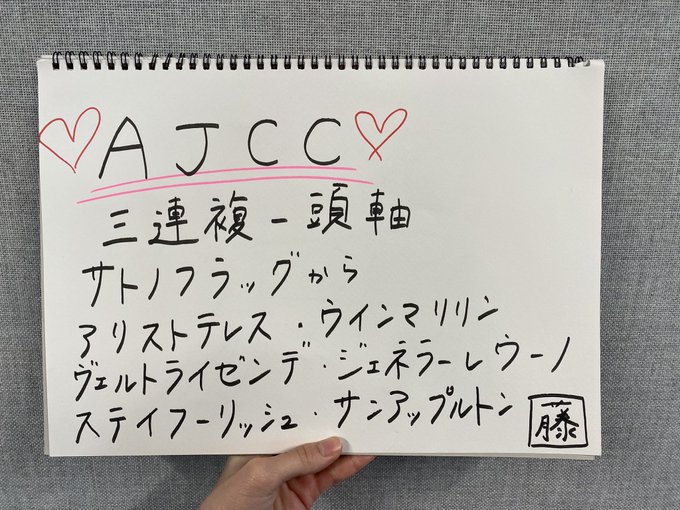 AJCC
三連複一頭軸
サトノフラッグから
アリストテレス・ウインマリリン
ヴェルトライゼンデ・ジェネラーレウーノ
ステイフーリッシュ・サンアップルトン
藤